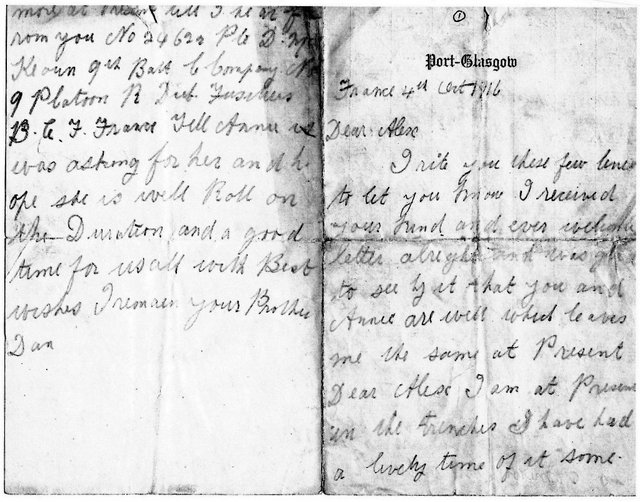 ①
Port-Glasgow
France 4th Oct 1916
Dear Alex
I rite you these few lines
to let you know I received
your kind and ever welcome
letter alright and was glad
to see by it that you and
Annie are well which leaves
me the same at Present
Dear Alex I am at Present
in the trenches I have had
a lively time of it some
more at Presene till I hear f
rom you No 24622 Pte D. Mc
Keown 9th Batt C Company No
9 Platoon R Dub. Fusiliers
B. E. F. France Tell Annie i
was asking for her and h
ope she is well Roll on
the Duration and a good
time for us all with Best
wishes I remain your Brother
Dan